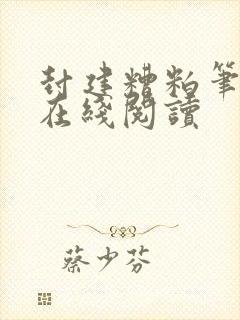 封建糟粕筆
在綫閱讀
蔡少芬